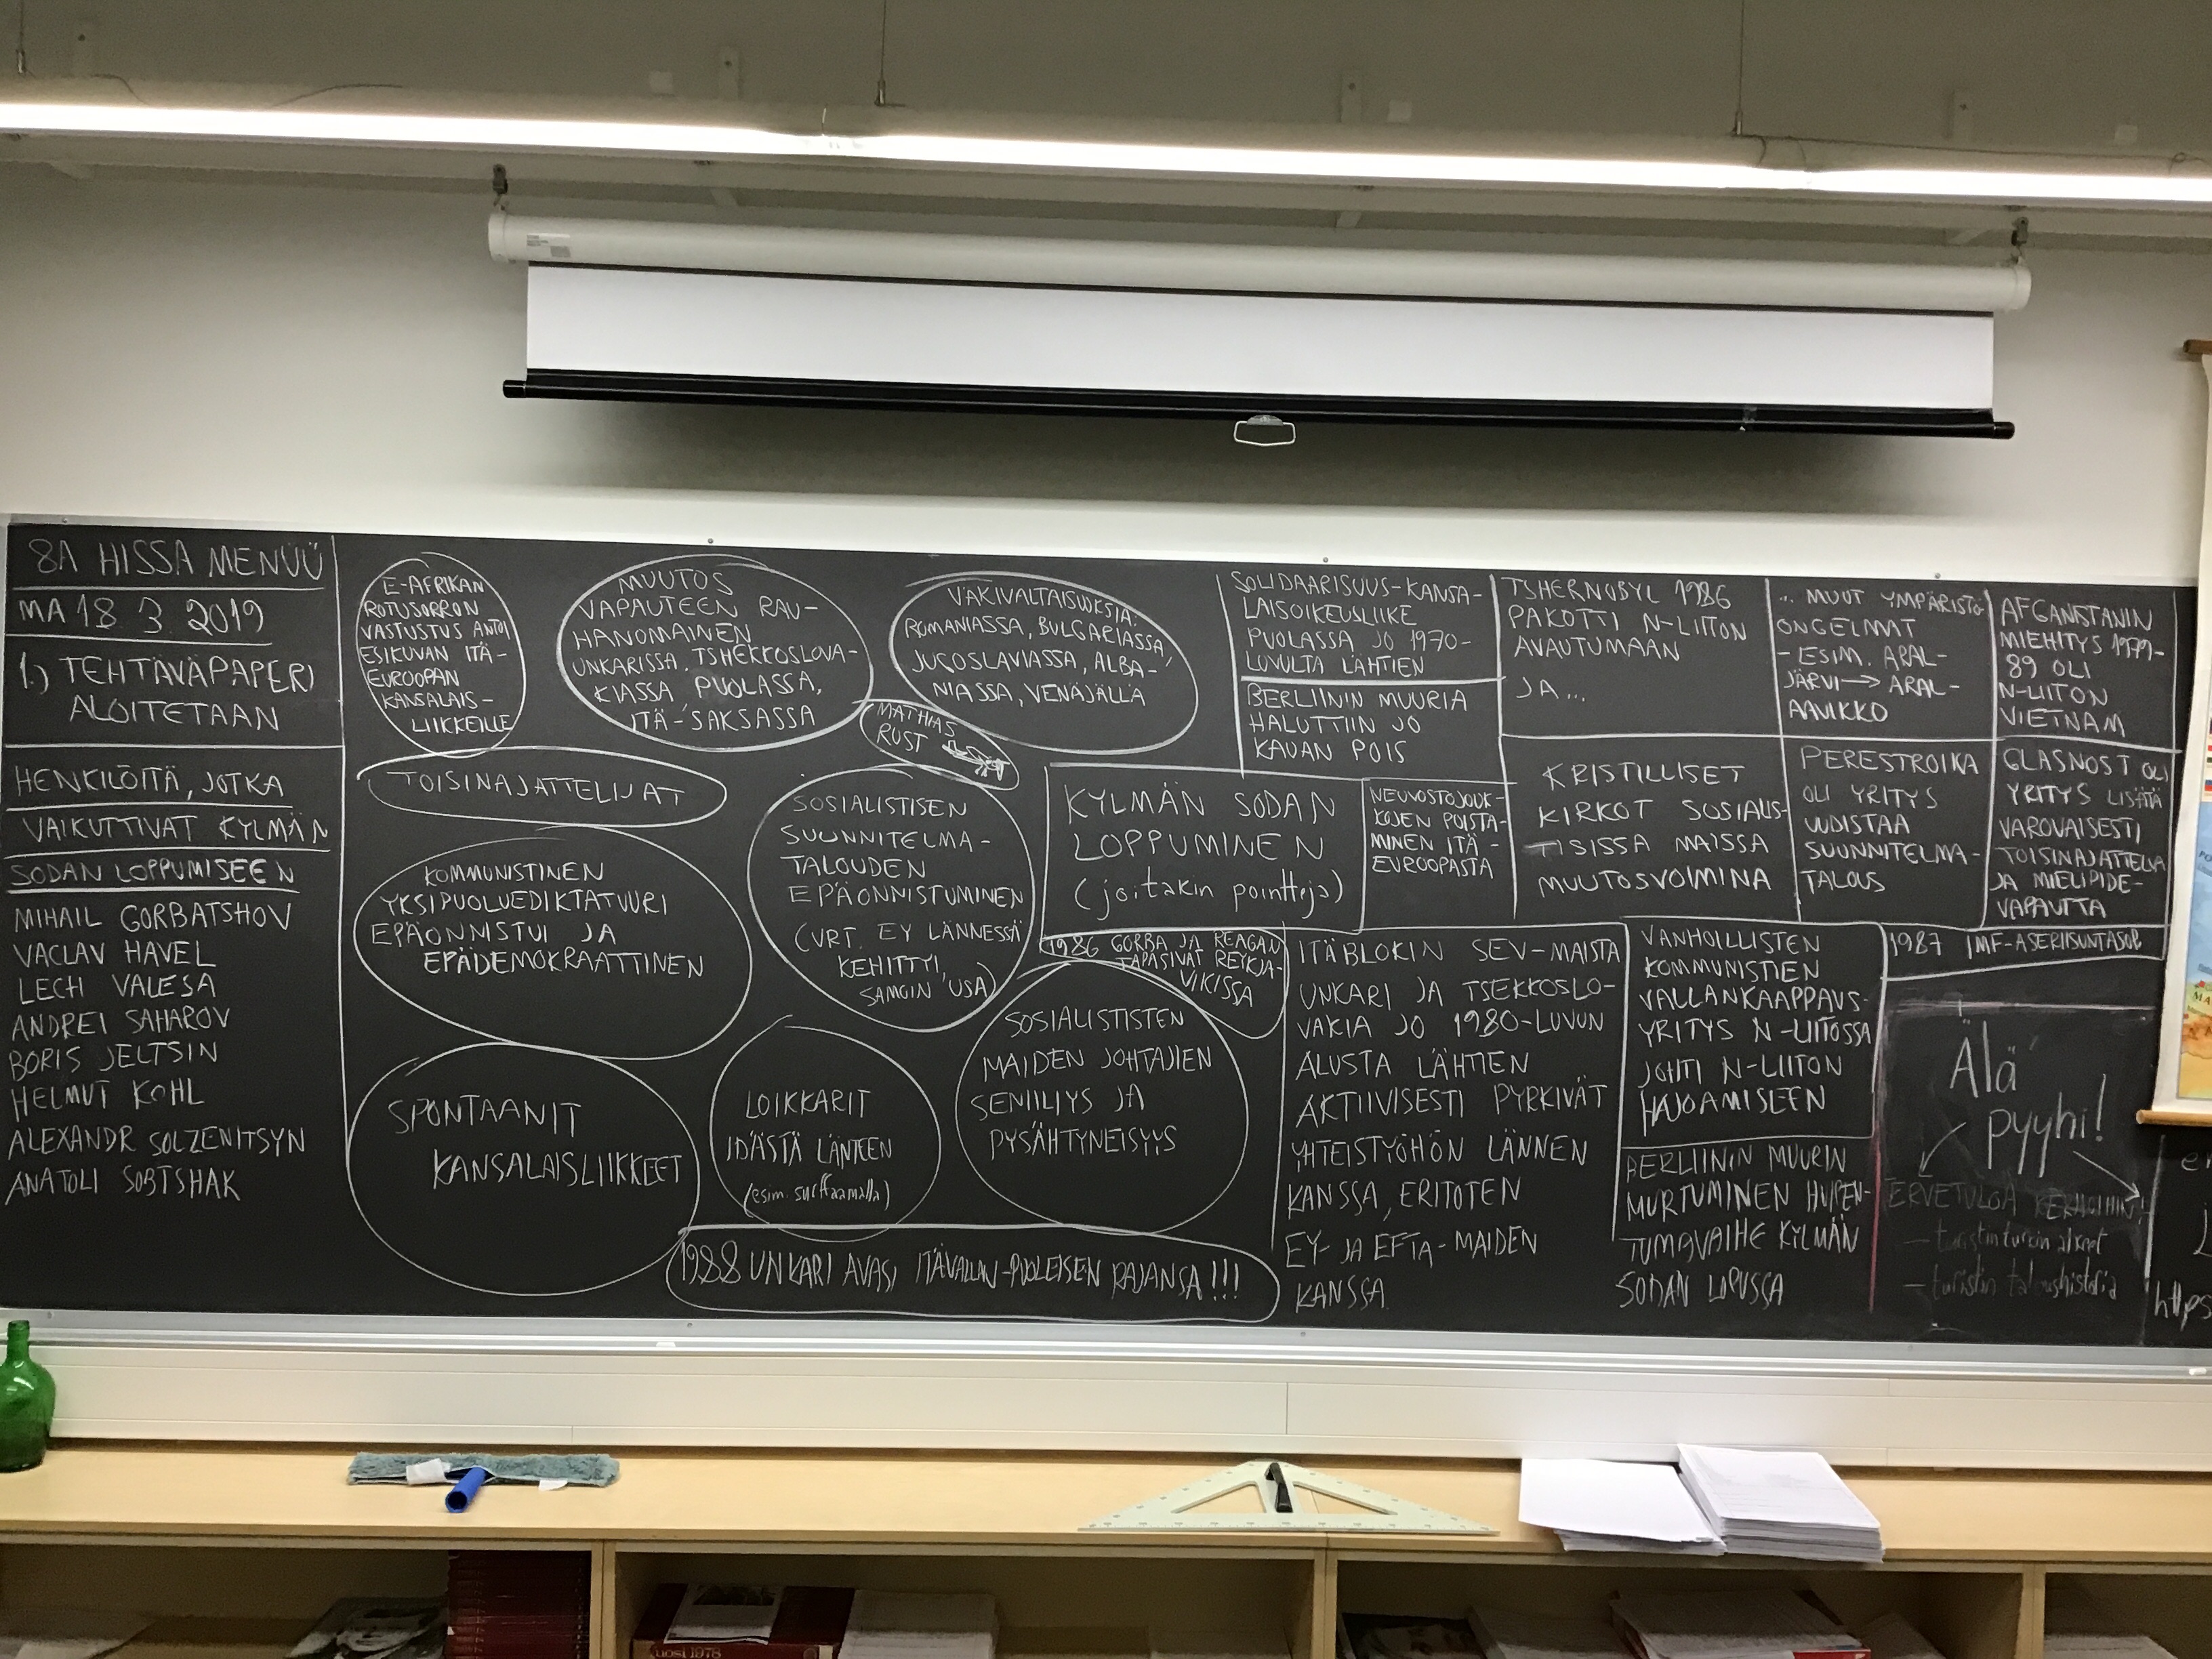 8A HISSA MENÜÜ
MA 18.3.2019
1.) TEHTÄVÄPAPERI
ALOITETAAN
HENKILÖITÄ, JOTKA
VAIKUTTIVAT KYLMÄN
SODAN LOPPUMISEEN
MIHAIL GORBATSHOV
VACLAV HAVEL
LECH VALESA
ANDREI SAHAROV
BORIS JELTSIN
HELMUT KOHL
ALEXANDR SOLZENITSYN
ANATOLI SOBTSHAK
E-AFRIKAN
ROTUSORRON
VASTUSTUS ANTOI
ESIKUVAN ITÄ-
EUROOPAN
KANSALAIS-
LIIKKEILLE
MUUTOS
VAPAUTEEN RAU-
HANOMAINEN
UNKARISSA, TSHEKKOSLOVA-
KIASSA, PUOLASSA,
ITÄ-SAKSASSA
VÄKIVALTAISUUKSIA:
ROMANIASSA, BULGARIASSA,
JUGOSLAVIASSA, ALBA-
NIASSA, VENÄJÄLLÄ
MATHIAS
RUST
TOISINAJATTELIJAT
KOMMUNISTINEN
YKSIPUOLUEDIKTATUURI
EPÄONNISTUI JA
EPÄDEMOKRAATTINEN
SOSIALISTISEN
SUUNNITELMA-
TALOUDEN
EPÄONNISTUMINEN
(VRT. EY LÄNNESSÄ
KEHITTYI,
SAMOIN USA)
SPONTAANIT
KANSALAISLIIKKEET
LOIKKARIT
IDÄSTÄ LÄNTEEN
(esim. surffaamalla)
SOSIALISTISTEN
MAIDEN JOHTAJIEN
SENIILIYS JA
PYSÄHTYNEISYYS
1988 UNKARI AVASI ITÄVALLAN-PUOLEISEN RAJANSA!!!
KYLMÄN SODAN
LOPPUMINEN
(joitakin pointteja)
1986 GORBA JA REAGAN
TAPASIVAT REYKJA-
VIKISSA
SOLIDAARISUUS-KANSA-
LAISOIKEUSLIIKE
PUOLASSA JO 1970-
LUVULTA LÄHTIEN
BERLIININ MUURIA
HALUTTIIN JO
KAUAN POIS
NEUVOSTOJOUK-
KOJEN POISTA-
MINEN ITÄ-
EUROOPASTA
TSHERNOBYL 1986
PAKOTTI N-LIITON
AVAUTUMAAN
JA...
... MUUT YMPÄRISTÖ-
ONGELMAT
- ESIM. ARAL-
JÄRVI → ARAL-
AAVIKKO
AFGANISTANIN
MIEHITYS 1979-
89 OLI
N-LIITON
VIETNAM
KRISTILLISET
KIRKOT SOSIALIS-
TISISSA MAISSA
MUUTOSVOIMINA
PERESTROIKA
OLI YRITYS
UUDISTAA
SUUNNITELMA-
TALOUS
GLASNOST OLI
YRITYS LISÄTÄ
VAROVAISESTI
TOISINAJATTELUA
JA MIELIPIDE-
VAPAUTTA
ITÄBLOKIN SEV-MAISTA
UNKARI JA TSEKKOSLO-
VAKIA JO 1980-LUVUN
ALUSTA LÄHTIEN
AKTIIVISESTI PYRKIVÄT
YHTEISTYÖHÖN LÄNNEN
KANSSA, ERITOTEN
EY- JA EFTA-MAIDEN
KANSSA
VANHOILLISTEN
KOMMUNISTIEN
VALLANKAAPPAUS-
YRITYS N-LIITOSSA
JOHTI N-LIITON
HAJOAMISEEN
BERLIININ MUURIN
MURTUMINEN HUIPEN-
TUMAVAIHE KYLMÄN
SODAN LOPUSSA
1987 IMF-ASERIISUNTASOP
Älä
pyyhi!
https
uosi 1978